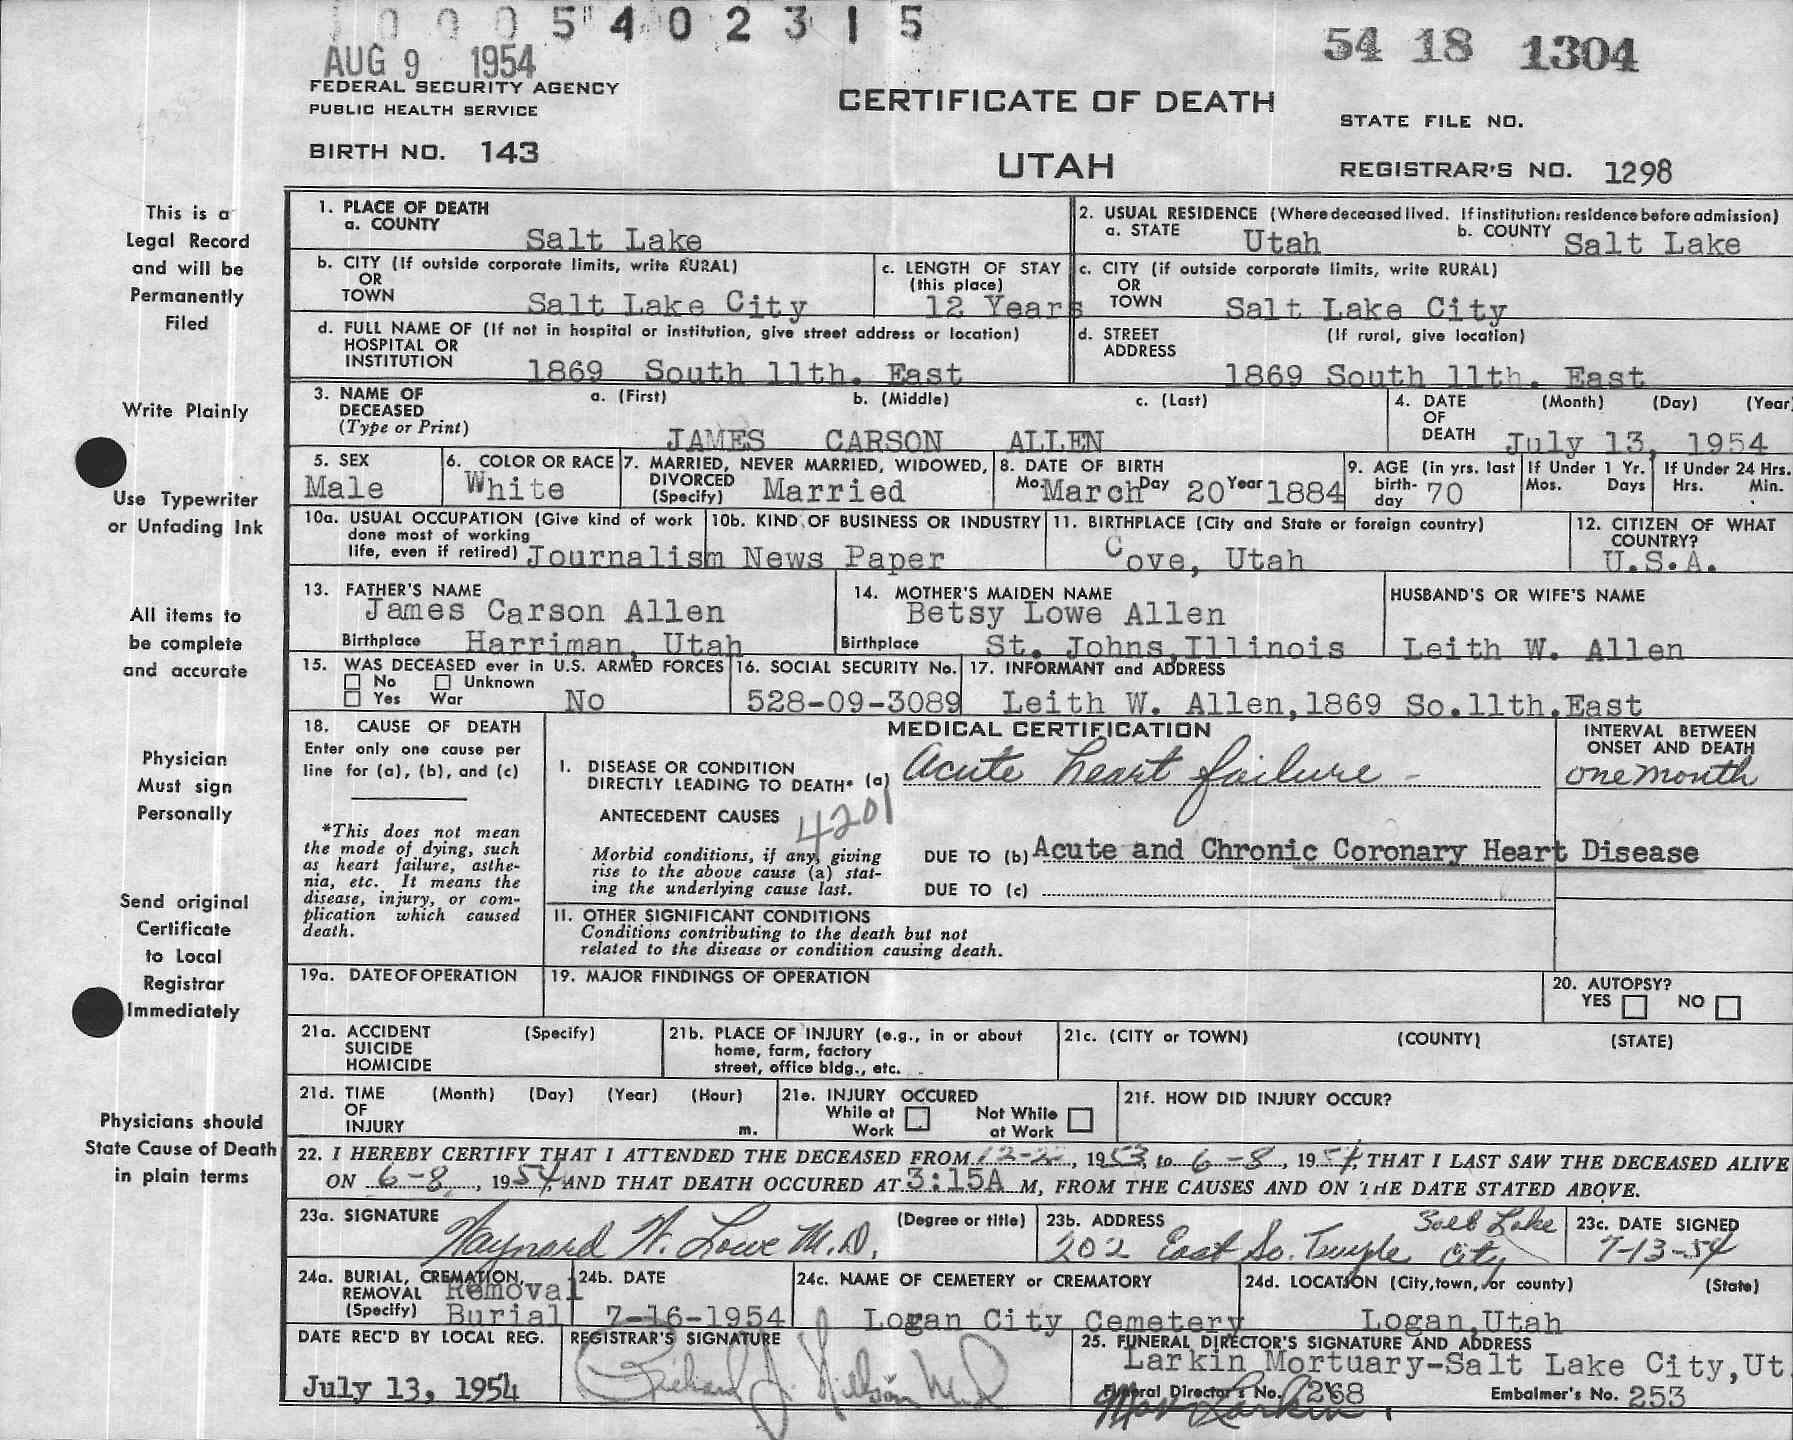 0005402315
AUG 9 1954
54 18 1304
FEDERAL SECURITY AGENCY
PUBLIC HEALTH SERVICE
CERTIFICATE OF DEATH
STATE FILE NO.
BIRTH NO. 143
UTAH
REGISTRAR'S NO. 1298
This is a
Legal Record
and will be
Permanently
Filed
Write Plainly
Use Typewriter
or Unfading Ink
All items to
be complete
and accurate
Physician
Must sign
Personally
Send original
Certificate
to Local
Registrar
Immediately
Physicians should
State Cause of Death
in plain terms
1. PLACE OF DEATH
a. COUNTY
Salt Lake
2. USUAL RESIDENCE (Where deceased lived. If institution: residence before admission)
a. STATE Utah b. COUNTY Salt Lake
b. CITY (If outside corporate limits, write RURAL)
OR
TOWN Salt Lake City
c. LENGTH OF STAY
(this place)
12 Years
c. CITY (if outside corporate limits, write RURAL)
OR
TOWN Salt Lake City
d. FULL NAME OF (If not in hospital or institution, give street address or location)
HOSPITAL OR
INSTITUTION 1869 South 11th. East
d. STREET (If rural, give location)
ADDRESS
1869 South 11th. East
3. NAME OF a. (First) b. (Middle) c. (Last)
DECEASED
(Type or Print) JAMES CARSON ALLEN
4. DATE (Month) (Day) (Year
OF
DEATH July 13, 1954
5. SEX
Male
6. COLOR OR RACE
White
7. MARRIED, NEVER MARRIED, WIDOWED,
DIVORCED
(Specify) Married
8. DATE OF BIRTH
Mo. March Day 20 Year 1884
9. AGE (in yrs. last
birth-
day 70
If Under 1 Yr.
Mos. Days
If Under 24 Hrs.
Hrs. Min.
10a. USUAL OCCUPATION (Give kind of work
done most of working
life, even if retired) Journalism
10b. KIND OF BUSINESS OR INDUSTRY
News Paper
11. BIRTHPLACE (City and State or foreign country)
Cove, Utah
12. CITIZEN OF WHAT
COUNTRY?
U.S.A.
13. FATHER'S NAME
James Carson Allen
Birthplace Harriman, Utah
14. MOTHER'S MAIDEN NAME
Betsy Lowe Allen
Birthplace St. Johns,Illinois
HUSBAND'S OR WIFE'S NAME
Leith W. Allen
15. WAS DECEASED ever in U.S. ARMED FORCES
No Unknown
Yes War No
16. SOCIAL SECURITY No.
528-09-3089
17. INFORMANT and ADDRESS
Leith W. Allen,1869 So.11th.East
18. CAUSE OF DEATH
Enter only one cause per
line for (a), (b), and (c)
*This does not mean
the mode of dying, such
as heart failure, asthe-
nia, etc. It means the
disease, injury, or com-
plication which caused
death.
MEDICAL CERTIFICATION
I. DISEASE OR CONDITION
DIRECTLY LEADING TO DEATH* (a) Acute heart failure -
INTERVAL BETWEEN
ONSET AND DEATH
one month
ANTECEDENT CAUSES 4201
Morbid conditions, if any, giving
rise to the above cause (a) stat-
ing the underlying cause last.
DUE TO (b) Acute and Chronic Coronary Heart Disease
DUE TO (c)
II. OTHER SIGNIFICANT CONDITIONS
Conditions contributing to the death but not
related to the disease or condition causing death.
19a. DATE OF OPERATION
19. MAJOR FINDINGS OF OPERATION
20. AUTOPSY?
YES NO
21a. ACCIDENT (Specify)
SUICIDE
HOMICIDE
21b. PLACE OF INJURY (e.g., in or about
home, farm, factory
street, office bldg., etc.
21c. (CITY or TOWN) (COUNTY) (STATE)
21d. TIME (Month) (Day) (Year) (Hour)
OF
INJURY m.
21e. INJURY OCCURED
While at Not While
Work at Work
21f. HOW DID INJURY OCCUR?
22. I HEREBY CERTIFY THAT I ATTENDED THE DECEASED FROM 12-22, 1953, to 6-8, 1954, THAT I LAST SAW THE DECEASED ALIVE
ON 6-8, 1954, AND THAT DEATH OCCURED AT 3:15A M, FROM THE CAUSES AND ON THE DATE STATED ABOVE.
23a. SIGNATURE (Degree or title)
Maynard W. Lowe M.D.
23b. ADDRESS Salt Lake
202 East So. Temple City
23c. DATE SIGNED
7-13-54
24a. BURIAL, CREMATION,
REMOVAL Removal
(Specify) Burial
24b. DATE
7-16-1954
24c. NAME OF CEMETERY or CREMATORY
Logan City Cemetery
24d. LOCATION (City,town, or county) (State)
Logan,Utah
DATE REC'D BY LOCAL REG.
July 13, 1954
REGISTRAR'S SIGNATURE
Richard J. Nelson
25. FUNERAL DIRECTOR'S SIGNATURE AND ADDRESS
Larkin Mortuary-Salt Lake City,Ut.
Funeral Director's No. 268 Embalmer's No. 253
Larkin